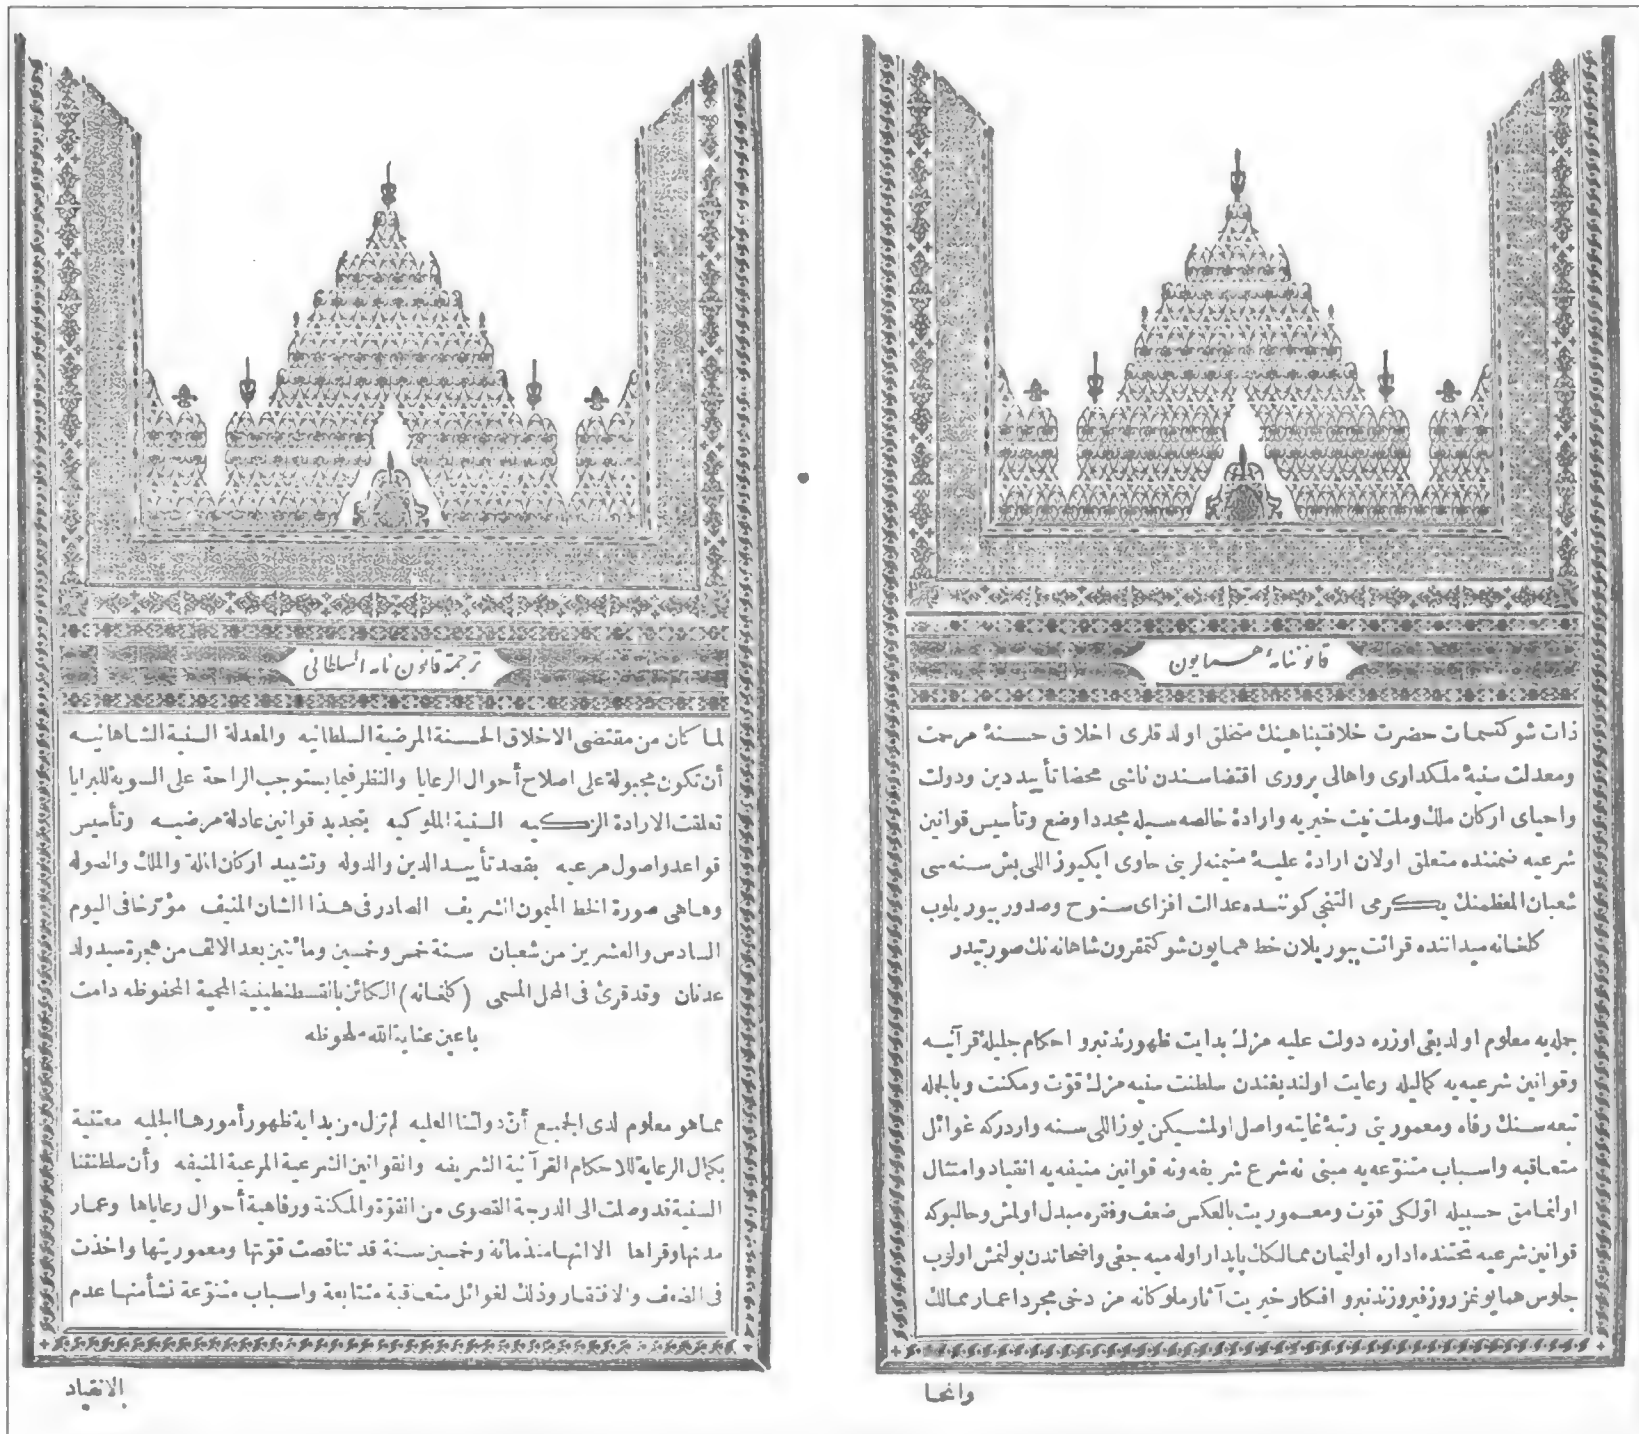 قانوننامهٔ همايون
ذات شوكتسمات حضرت خلافتپناهينك متخلق اولدقلرى اخلاق حسنهٔ مرحمت
ومعدلت سنيهٔ ملكدارى واهالى پرورى اقتضاسندن ناشى محضا تأييد دين ودولت
واحياى اركان ملك وملت نيت خيريه وارادهٔ خالصه سيله مجددا وضع وتأسيس قوانين
شرعيه ضمننده متعلق اولان ارادهٔ عليهٔ متيمنه لرينى حاوى ايكيوز اللى بش سنه سى
شعبان المعظمنك يكرمى التنجى كوننده عدالت افزاى سنوح وصدور بيوريلوب
كلخانه ميداننده قرائت بيوريلان خط همايون شوكتمقرون شاهانه نك صورتيدر
جمله يه معلوم اولديغى اوزره دولت عليه مزك بدايت ظهورندنبرو احكام جليلهٔ قرآنيه
وقوانين شرعيه يه كماليله رعايت اولنديغندن سلطنت سنيه مزك قوّت ومكنت وبالجمله
تبعه سنك رفاه ومعموريتى رتبهٔ غايته واصل اولمشيكن يوز اللى سنه واردركه غوائل
متعاقبه واسباب متنوّعه يه مبنى نه شرع شريفه ونه قوانين منيفه يه انقياد وامتثال
اولنمامق حسبيله اوّلكى قوّت ومعموريت بالعكس ضعف وفقره مبدل اولمش وحالبوكه
قوانين شرعيه تحتنده اداره اولنميان ممالكك پايدار اوله ميه جغى واضحاتدن بولنمش اولوب
جلوس همايونمز روز فيروزندنبرو افكار خيريت آثار ملوكانه مز دخى مجرد اعمار ممالك
وانحا
ترجمة قانون نامه السلطانى
لما كان من مقتضى الاخلاق الحسنة المرضية السلطانيه والمعدلة السنية الشاهانيه
أن تكون مجبولة على اصلاح أحوال الرعايا والنظر فيما يستوجب الراحة على السوية للبرايا
تعلقت الارادة الزكيه السنية الملوكيه بتجديد قوانين عادلة مرضيه وتأسيس
قواعد واصول مرعيه بقصد تأييد الدين والدوله وتشييد اركان الملة والملك والصوله
وهاهى صورة الخط الميمون الشريف الصادر فى هذا الشان المنيف مؤرخا فى اليوم
السادس والعشرين من شعبان سنة خمس وخمسين ومائتين بعد الالف من هجرة سيد ولد
عدنان وقد قرئ فى المحل المسمى (كلخانه) الكائن بالقسطنطينية المحمية المحفوظه دامت
باعين عناية الله ملحوظه
مما هو معلوم لدى الجميع أن دولتنا العليه لم تزل من بداية ظهور أمورها الجليه معتنية
بكمال الرعاية للاحكام القرآنية الشريفه والقوانين الشرعية المرعية المنيفه وأن سلطنتنا
السنية قد وصلت الى الدرجة القصوى من القوّة والمكنة ورفاهية أحوال رعاياها وعمار
مدنها وقراها الا انها منذ مائة وخمسين سنة قد تناقصت قوّتها ومعموريتها واخذت
فى الضعف والافتقار وذلك لغوائل متعاقبة متتابعة واسباب متنوّعة نشأ منها عدم
الانقياد